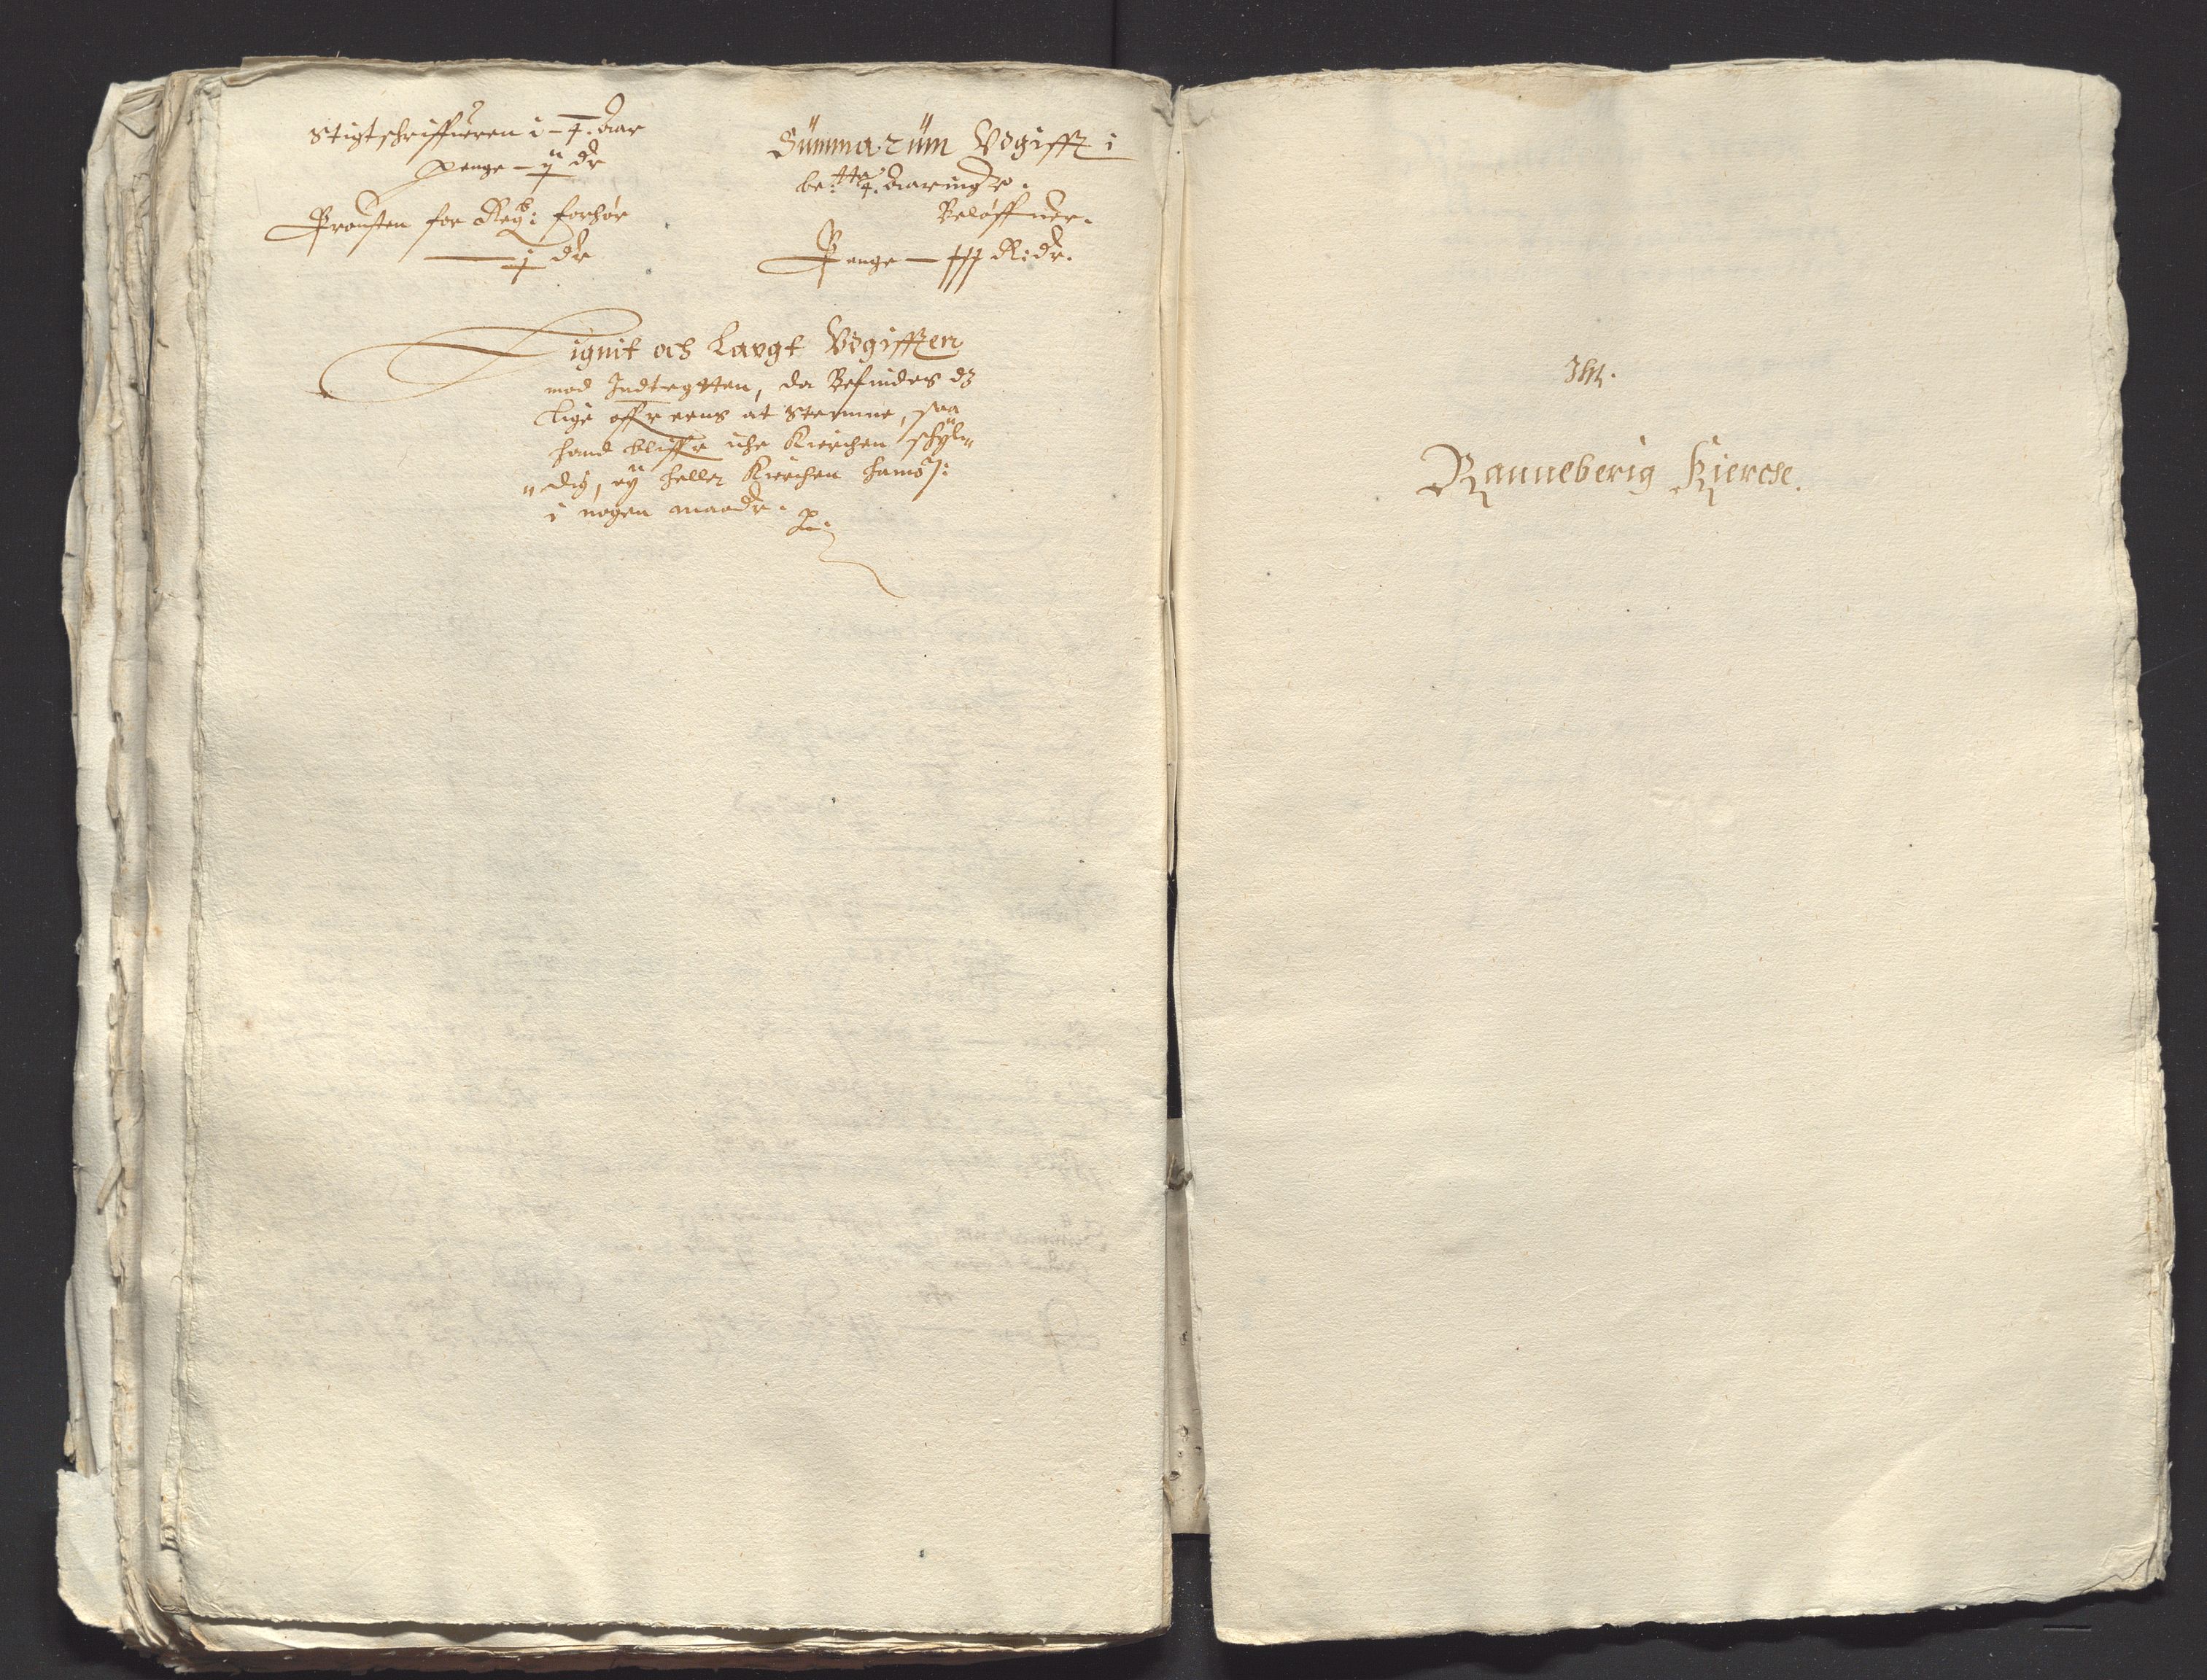 Stigtschriffueren i - 4. Aar
penge - ij dr
Prousten for Reg: forhør
- j dr
Summarum Vdgifft i
be:tte 4. Aaringer.
Beløffuer.
Penge - Rdr.
Lignit och Lavgt Vdgifften
mod Indtegtten, da Befindes dz
lige offuer eens at Stemme, saa
hand bliffuer iche Kierchen schyl„
„dig, ey heller Kierchen hannom
i nogen maade.
Ranneberig Kierche.